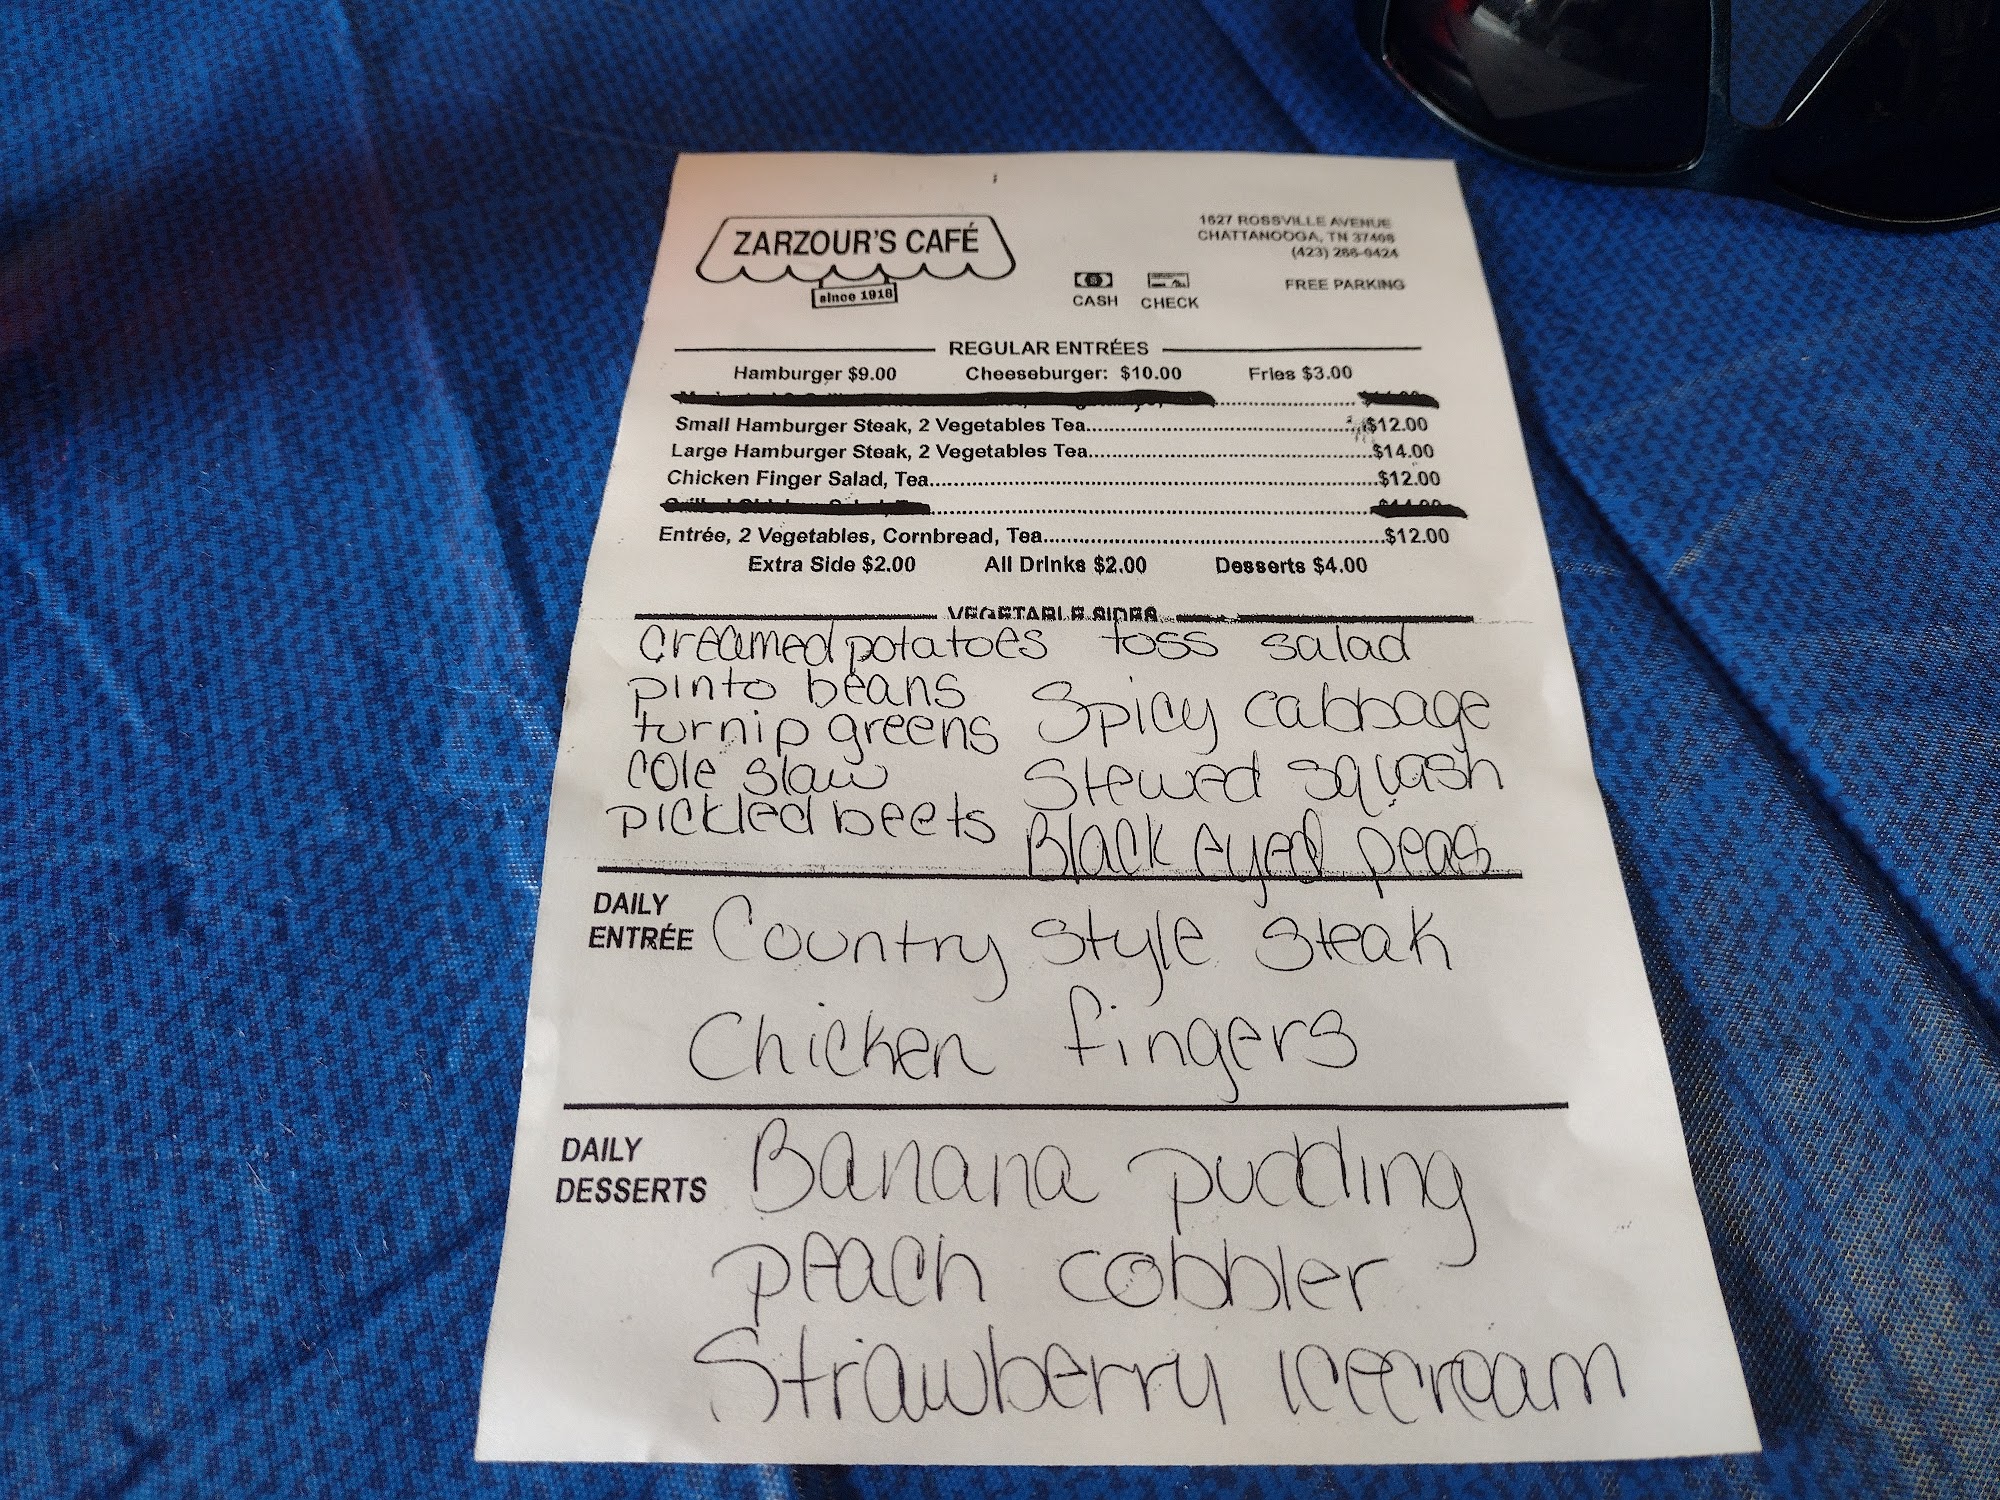 ZARZOUR'S CAFÉ
since 1918
1627 ROSSVILLE AVENUE
CHATTANOOGA, TN 37408
(423) 266-0424
CASH CHECK
FREE PARKING
REGULAR ENTRÉES
Hamburger $9.00 Cheeseburger: $10.00 Fries $3.00
Small Hamburger Steak, 2 Vegetables Tea $12.00
Large Hamburger Steak, 2 Vegetables Tea $14.00
Chicken Finger Salad, Tea $12.00
Entrée, 2 Vegetables, Cornbread, Tea $12.00
Extra Side $2.00 All Drinks $2.00 Desserts $4.00
VEGETABLE SIDES
creamed potatoes toss salad
pinto beans Spicy cabbage
turnip greens
cole slaw Stewed squash
pickled beets Black eyed peas
DAILY ENTRÉE Country style steak
Chicken fingers
DAILY DESSERTS Banana pudding
peach cobbler
Strawberry icecream